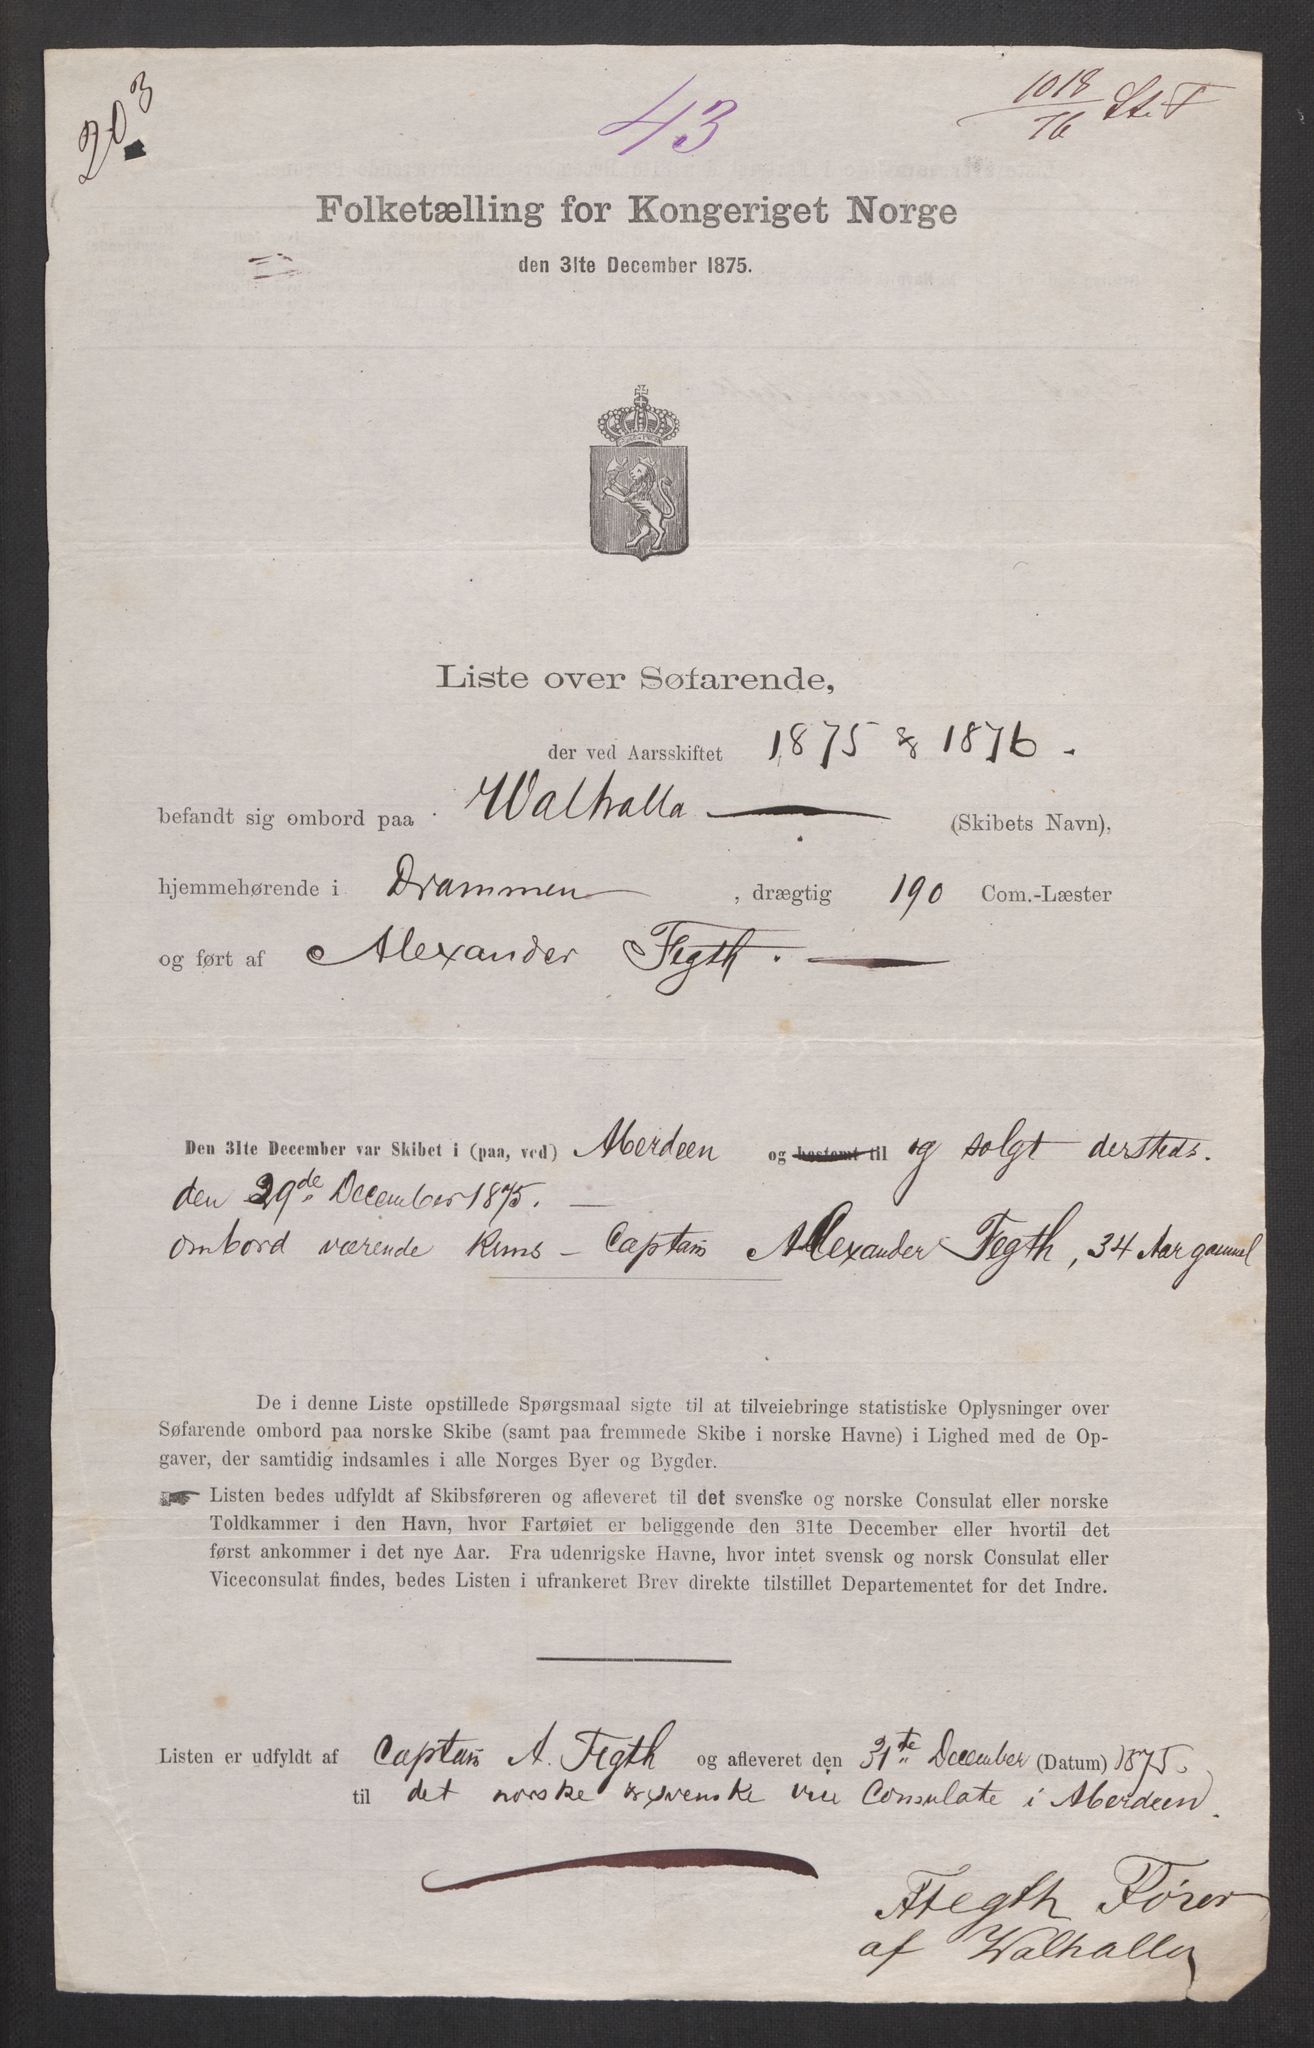 203
43
1018/76 St. T
Folketælling for Kongeriget Norge
den 31te December 1875.
Liste over Søfarende,
der ved Aarsskiftet 1875 & 1876.
befandt sig ombord paa Walhalla (Skibets Navn),
hjemmehørende i Drammen, drægtig 190 Com.-Læster
og ført af Alexander Fegth.
Den 31te December var Skibet i (paa, ved) Aberdeen og bestemt til og solgt dersteds.
den 29de December 1875. —
Ombord værende Kuns — Captain Alexander Fegth, 34 Aar gammel
De i denne Liste opstillede Spørgsmaal sigte til at tilveiebringe statistiske Oplysninger over
Søfarende ombord paa norske Skibe (samt paa fremmede Skibe i norske Havne) i Lighed med de Op-
gaver, der samtidig indsamles i alle Norges Byer og Bygder.
☛ Listen bedes udfyldt af Skibsføreren og afleveret til det svenske og norske Consulat eller norske
Toldkammer i den Havn, hvor Fartøiet er beliggende den 31te December eller hvortil det
først ankommer i det nye Aar. Fra udenrigske Havne, hvor intet svensk og norsk Consulat eller
Viceconsulat findes, bedes Listen i ufrankeret Brev direkte tilstillet Departementet for det Indre.
Listen er udfyldt af Captain A. Fegth og afleveret den 31te December (Datum) 1875.
til det norske & svenske vice Consulate i Aberdeen.
A Fegth Fører
af Walhalla